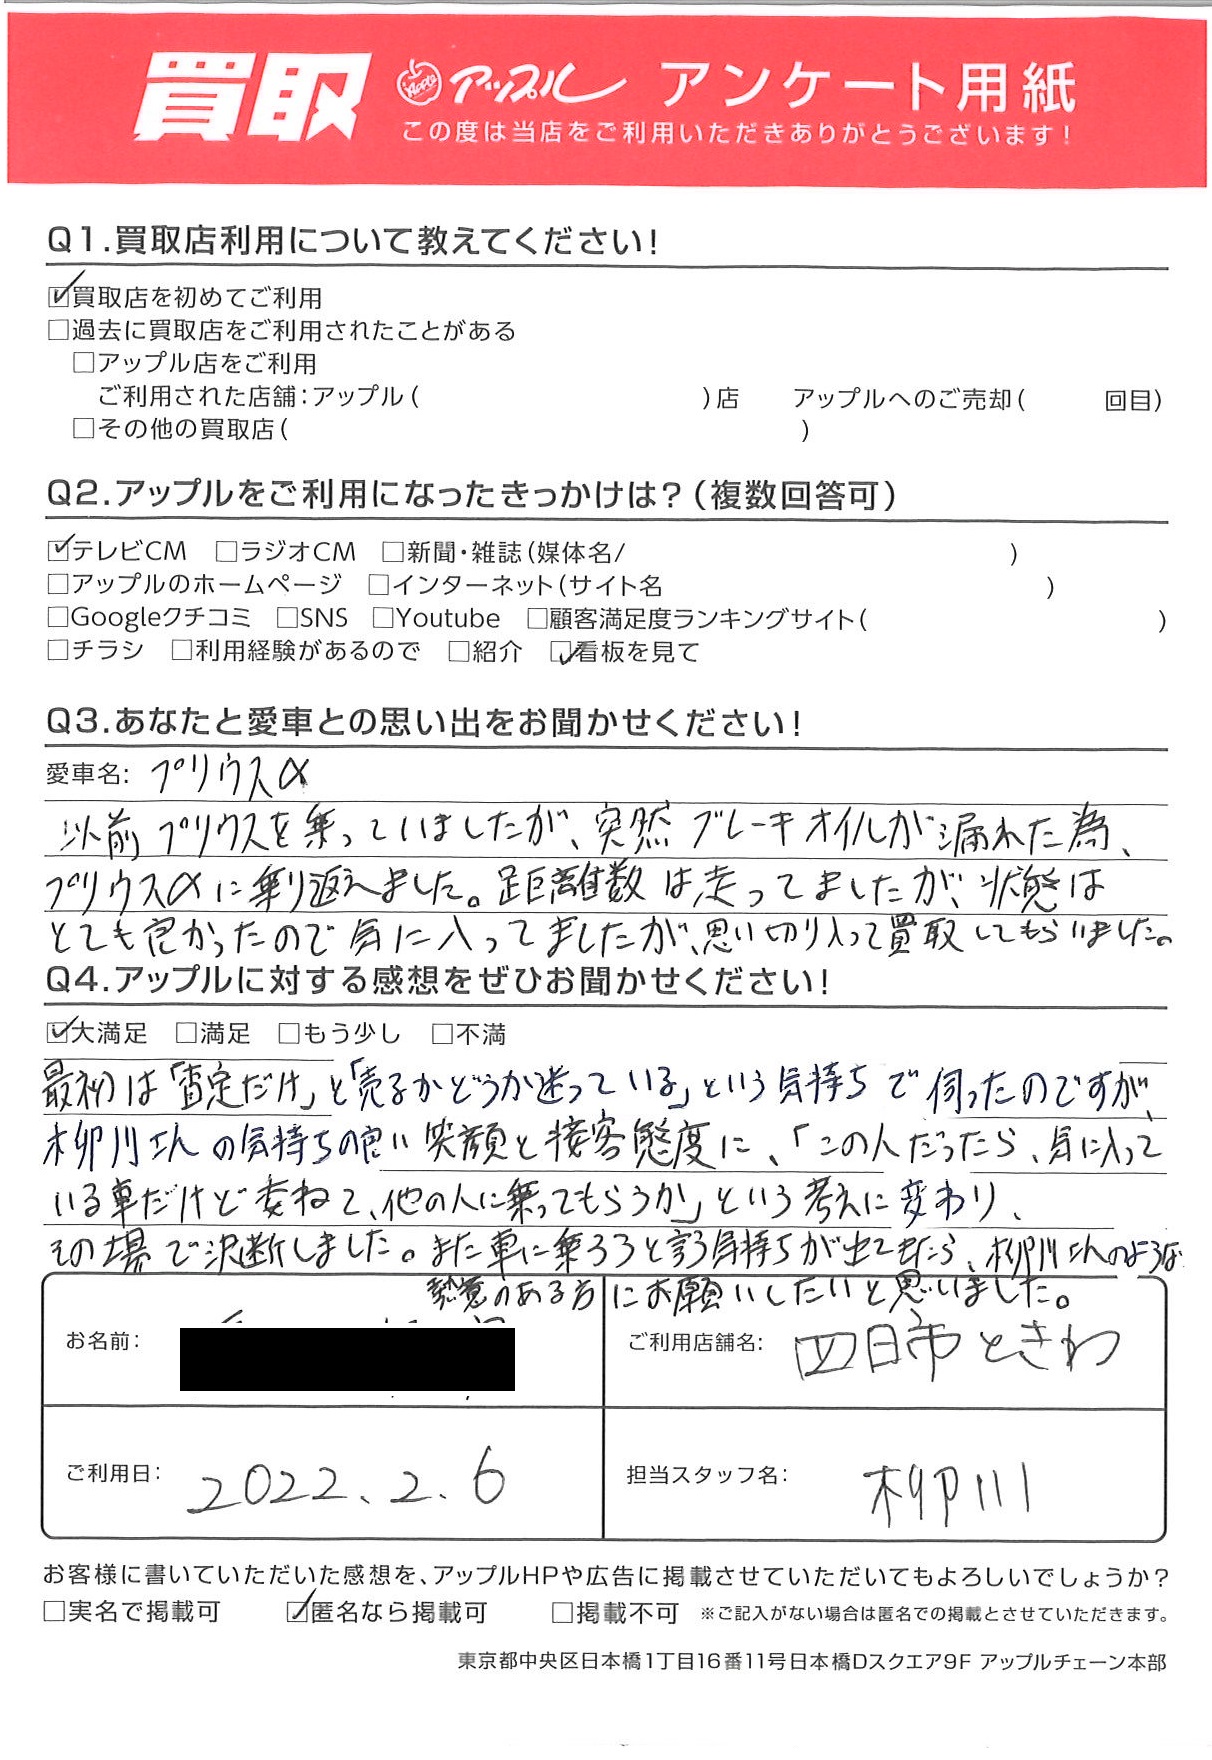 買取 Apple アップル アンケート用紙
この度は当店をご利用いただきありがとうございます!
Q1.買取店利用について教えてください!
☑買取店を初めてご利用
□過去に買取店をご利用されたことがある
□アップル店をご利用
ご利用された店舗:アップル( )店 アップルへのご売却( 回目)
□その他の買取店( )
Q2.アップルをご利用になったきっかけは?(複数回答可)
☑テレビCM □ラジオCM □新聞・雑誌(媒体名/ )
□アップルのホームページ □インターネット(サイト名 )
□Googleクチコミ □SNS □Youtube □顧客満足度ランキングサイト( )
□チラシ □利用経験があるので □紹介 ☑看板を見て
Q3.あなたと愛車との思い出をお聞かせください!
愛車名: プリウスα
以前プリウスを乗っていましたが、突然ブレーキオイルが漏れた為、
プリウスαに乗り返えました。距離数は走ってましたが、状態は
とても良かったので気に入ってましたが、思い切り入って買取してもらいました。
Q4.アップルに対する感想をぜひお聞かせください!
☑大満足 □満足 □もう少し □不満
最初は「査定だけ」と「売るかどうか迷っている」という気持ちで伺ったのですが、
柳川さんの気持ちの良い笑顔と接客態度に、「この人だったら、気に入って
いる車だけど委ねて、他の人に乗ってもらうか」という考えに変わり、
その場で決断しました。また車に乗ろうと言う気持ちが出てきたら、柳川さんのような
熱意のある方にお願いしたいと思いました。
お名前: ご利用店舗名: 四日市ときわ
ご利用日: 2022.2.6 担当スタッフ名: 柳川
お客様に書いていただいた感想を、アップルHPや広告に掲載させていただいてもよろしいでしょうか?
□実名で掲載可 ☑匿名なら掲載可 □掲載不可 ※ご記入がない場合は匿名での掲載とさせていただきます。
東京都中央区日本橋1丁目16番11号日本橋Dスクエア9F アップルチェーン本部